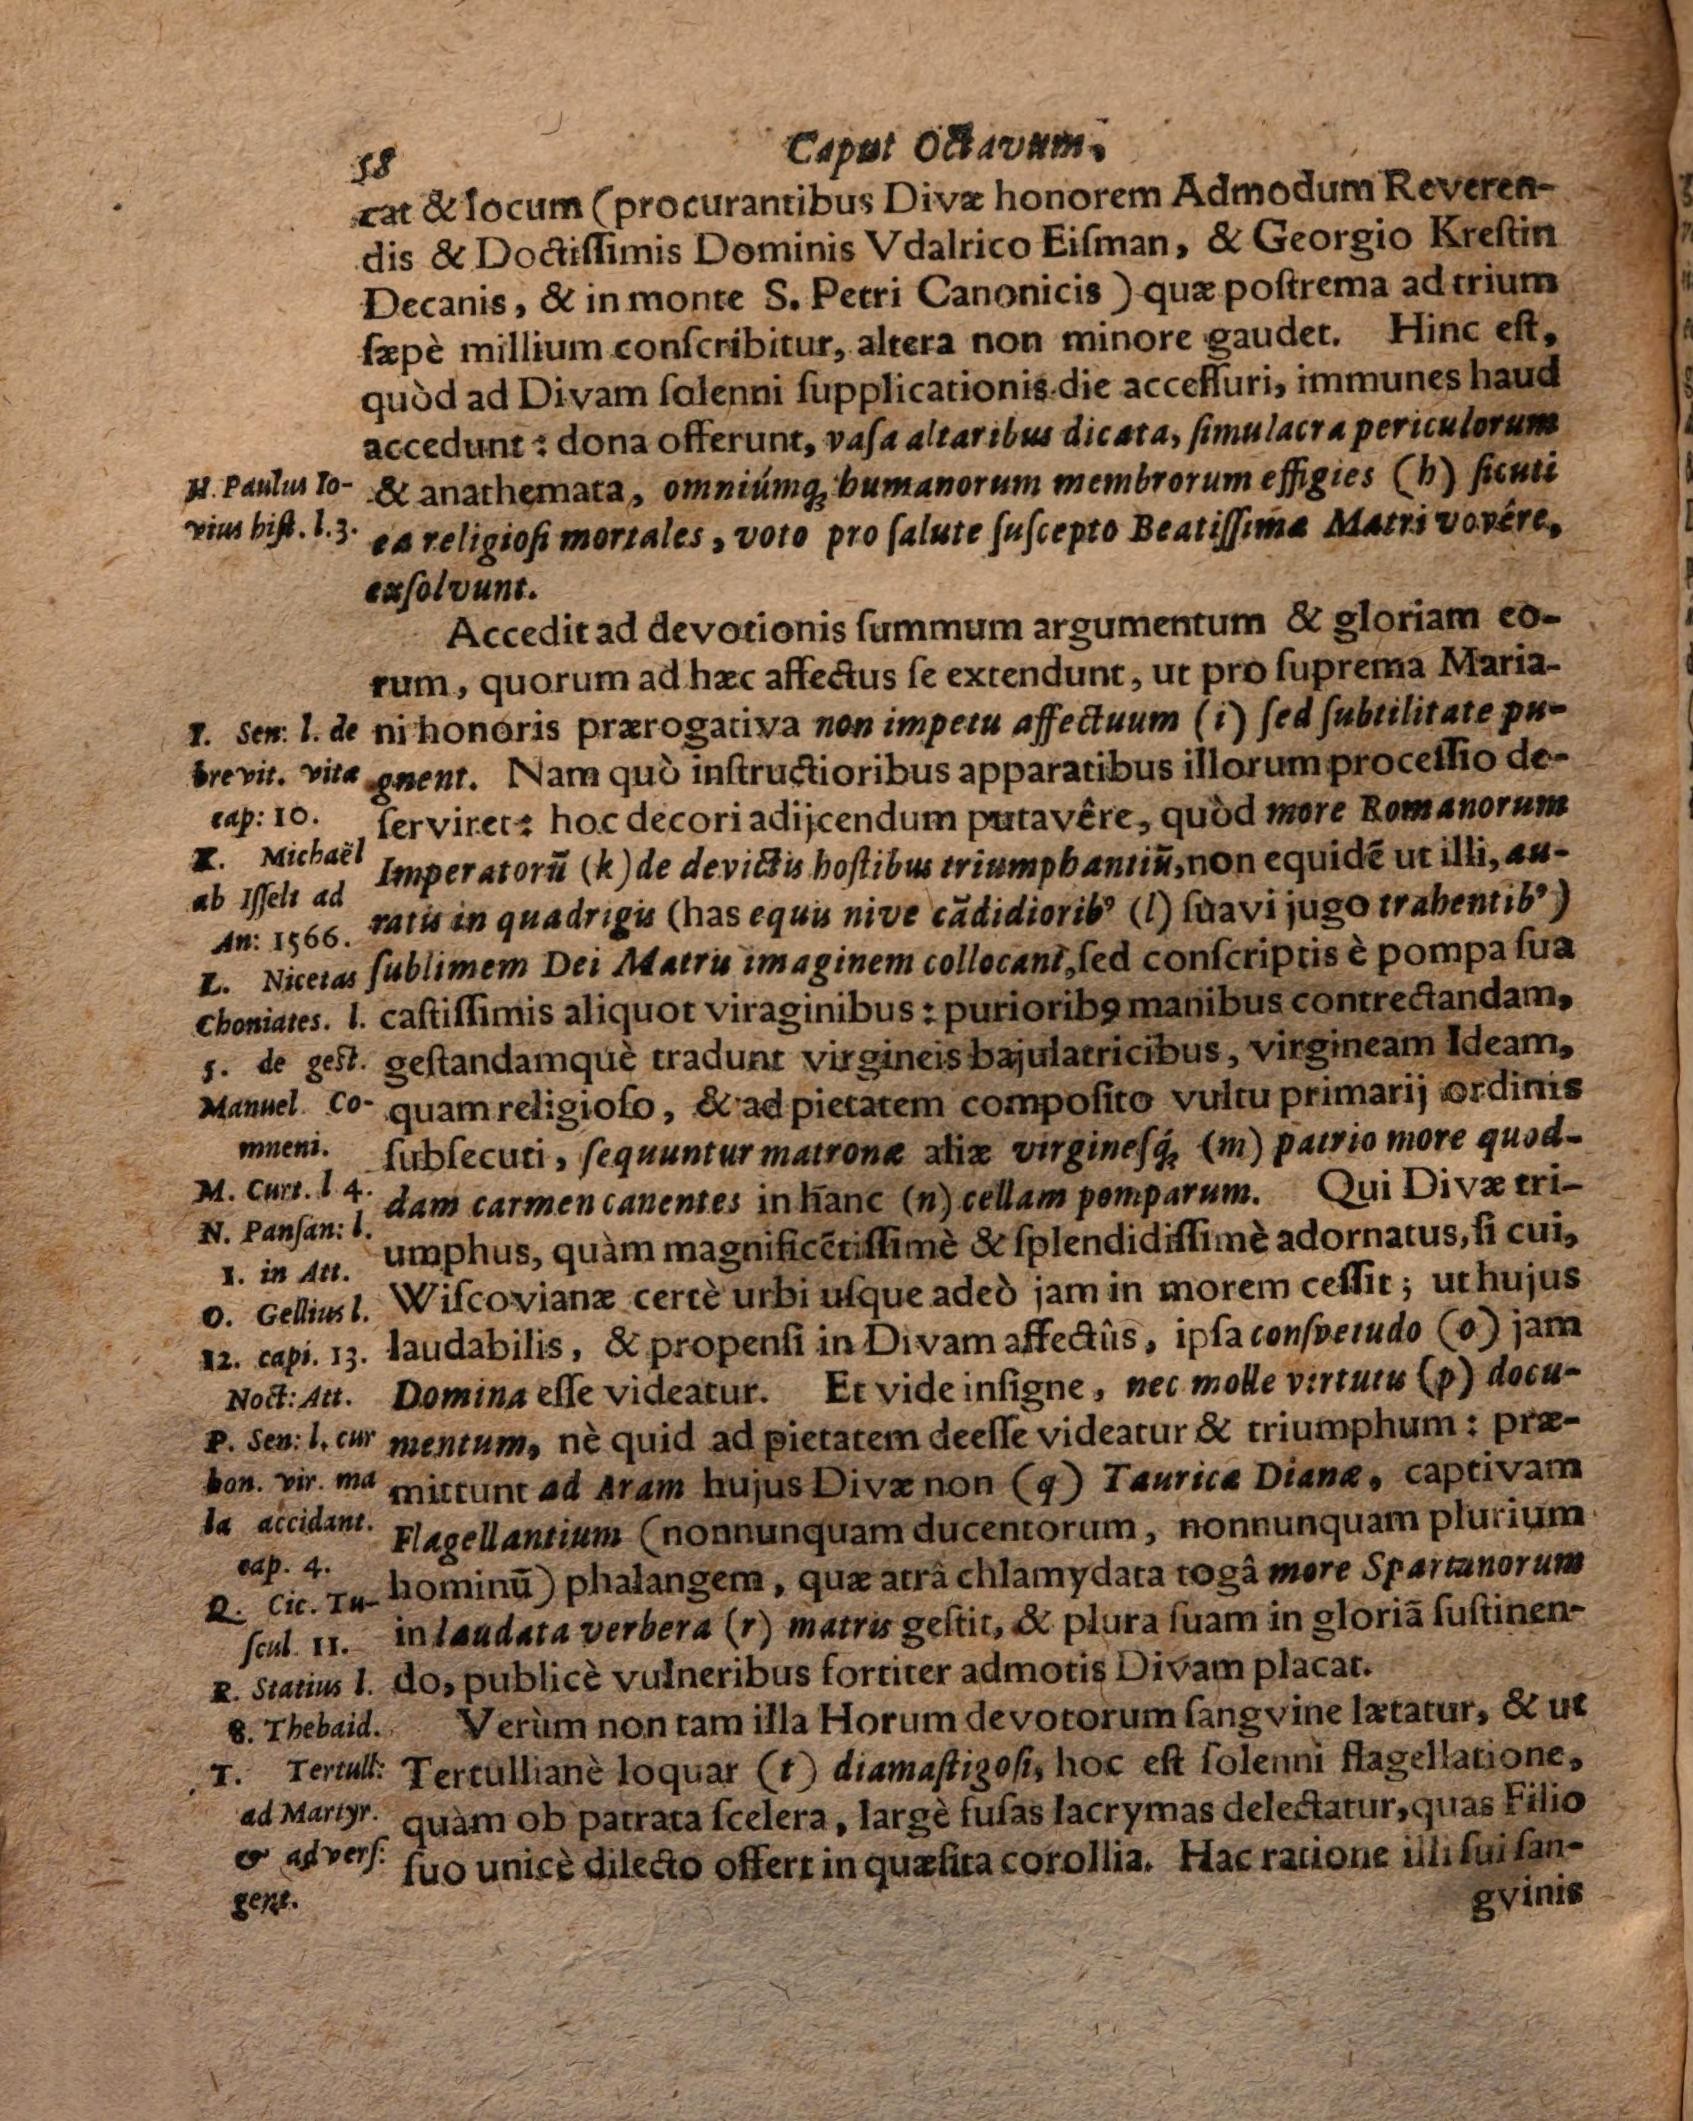 58
Caput Octavum,
rat & locum (procurantibus Divæ honorem Admodum Reveren-
dis & Doctiſſimis Dominis Vdalrico Eiſman, & Georgio Kreſtin
Decanis, & in monte S. Petri Canonicis) quæ poſtrema ad trium
ſæpè millium conſcribitur, altera non minore gaudet. Hinc eſt,
quòd ad Divam ſolenni ſupplicationis die acceſſuri, immunes haud
accedunt: dona offerunt, vaſa altaribus dicata, ſimulacra periculorum
& anathemata, omniúmq; humanorum membrorum effigies (h) ſicuti
ea religioſi mortales, voto pro ſalute ſuſcepto Beatiſſimæ Matri vovêre,
exſolvunt.
Accedit ad devotionis ſummum argumentum & gloriam eo-
rum, quorum ad hæc affectus ſe extendunt, ut pro ſuprema Maria-
ni honoris prærogativa non impetu affectuum (i) ſed ſubtilitate pu-
gnent. Nam quò inſtructioribus apparatibus illorum proceſſio de-
ſerviret: hoc decori adijcendum putavêre, quòd more Romanorum
Imperatorũ (k) de devictis hoſtibus triumphantiũ, non equidẽ ut illi, au-
ratis in quadrigis (has equis nive cãdidiorib⁹ (l) ſuavi jugo trahentib⁹)
ſublimem Dei Matris imaginem collocant, ſed conſcriptis è pompa ſua
caſtiſſimis aliquot viraginibus: puriorib9 manibus contrectandam,
geſtandamquè tradunt virgineis bajulatricibus, virgineam Ideam,
quam religioſo, & ad pietatem compoſito vultu primarij ordinis
ſubſecuti, ſequuntur matronæ aliæ virgineſq́; (m) patrio more quod-
dam carmen canentes in hanc (n) cellam pomparum. Qui Divæ tri-
umphus, quàm magnificẽtiſſimè & ſplendidiſſimè adornatus, ſi cui,
Wiſcovianæ certè urbi uſque adeò jam in morem ceſſit; ut hujus
laudabilis, & propenſi in Divam affectûs, ipſa conſvetudo (o) jam
Domina eſſe videatur. Et vide inſigne, nec molle virtutis (p) docu-
mentum, nè quid ad pietatem deeſſe videatur & triumphum: præ-
mittunt ad Aram hujus Divæ non (q) Tauricæ Dianæ, captivam
Flagellantium (nonnunquam ducentorum, nonnunquam plurium
hominũ) phalangem, quæ atrâ chlamydata togâ more Spartanorum
in laudata verbera (r) matris geſtit, & plura ſuam in gloriã ſuſtinen-
do, publicè vulneribus fortiter admotis Divam placat.
Verùm non tam illa Horum devotorum ſangvine lætatur, & ut
Tertullianè loquar (t) diamaſtigoſi, hoc eſt ſolenni flagellatione,
quàm ob patrata ſcelera, largè fuſas lacrymas delectatur, quas Filio
ſuo unicè dilecto offert in quæſita corollia. Hac ratione illi ſui ſan-
gvinis
H. Paulus Io-
vius hiſt. l.3.
I. Sen: l. de
brevit. vitæ
cap: 10.
K. Michaël
ab Iſſelt ad
An: 1566.
L. Nicetas
Choniates. l.
5. de geſt.
Manuel Co-
mneni.
M. Curt. l 4.
N. Panſan: l.
1. in Att.
O. Gellius l.
12. capi. 13.
Noct: Att.
P. Sen: l. cur
bon. vir. ma
la accidant.
cap. 4.
Q. Cic. Tu-
ſcul 11.
R. Statius l.
8. Thebaid.
T. Tertull:
ad Martyr.
& adverſ:
gent.